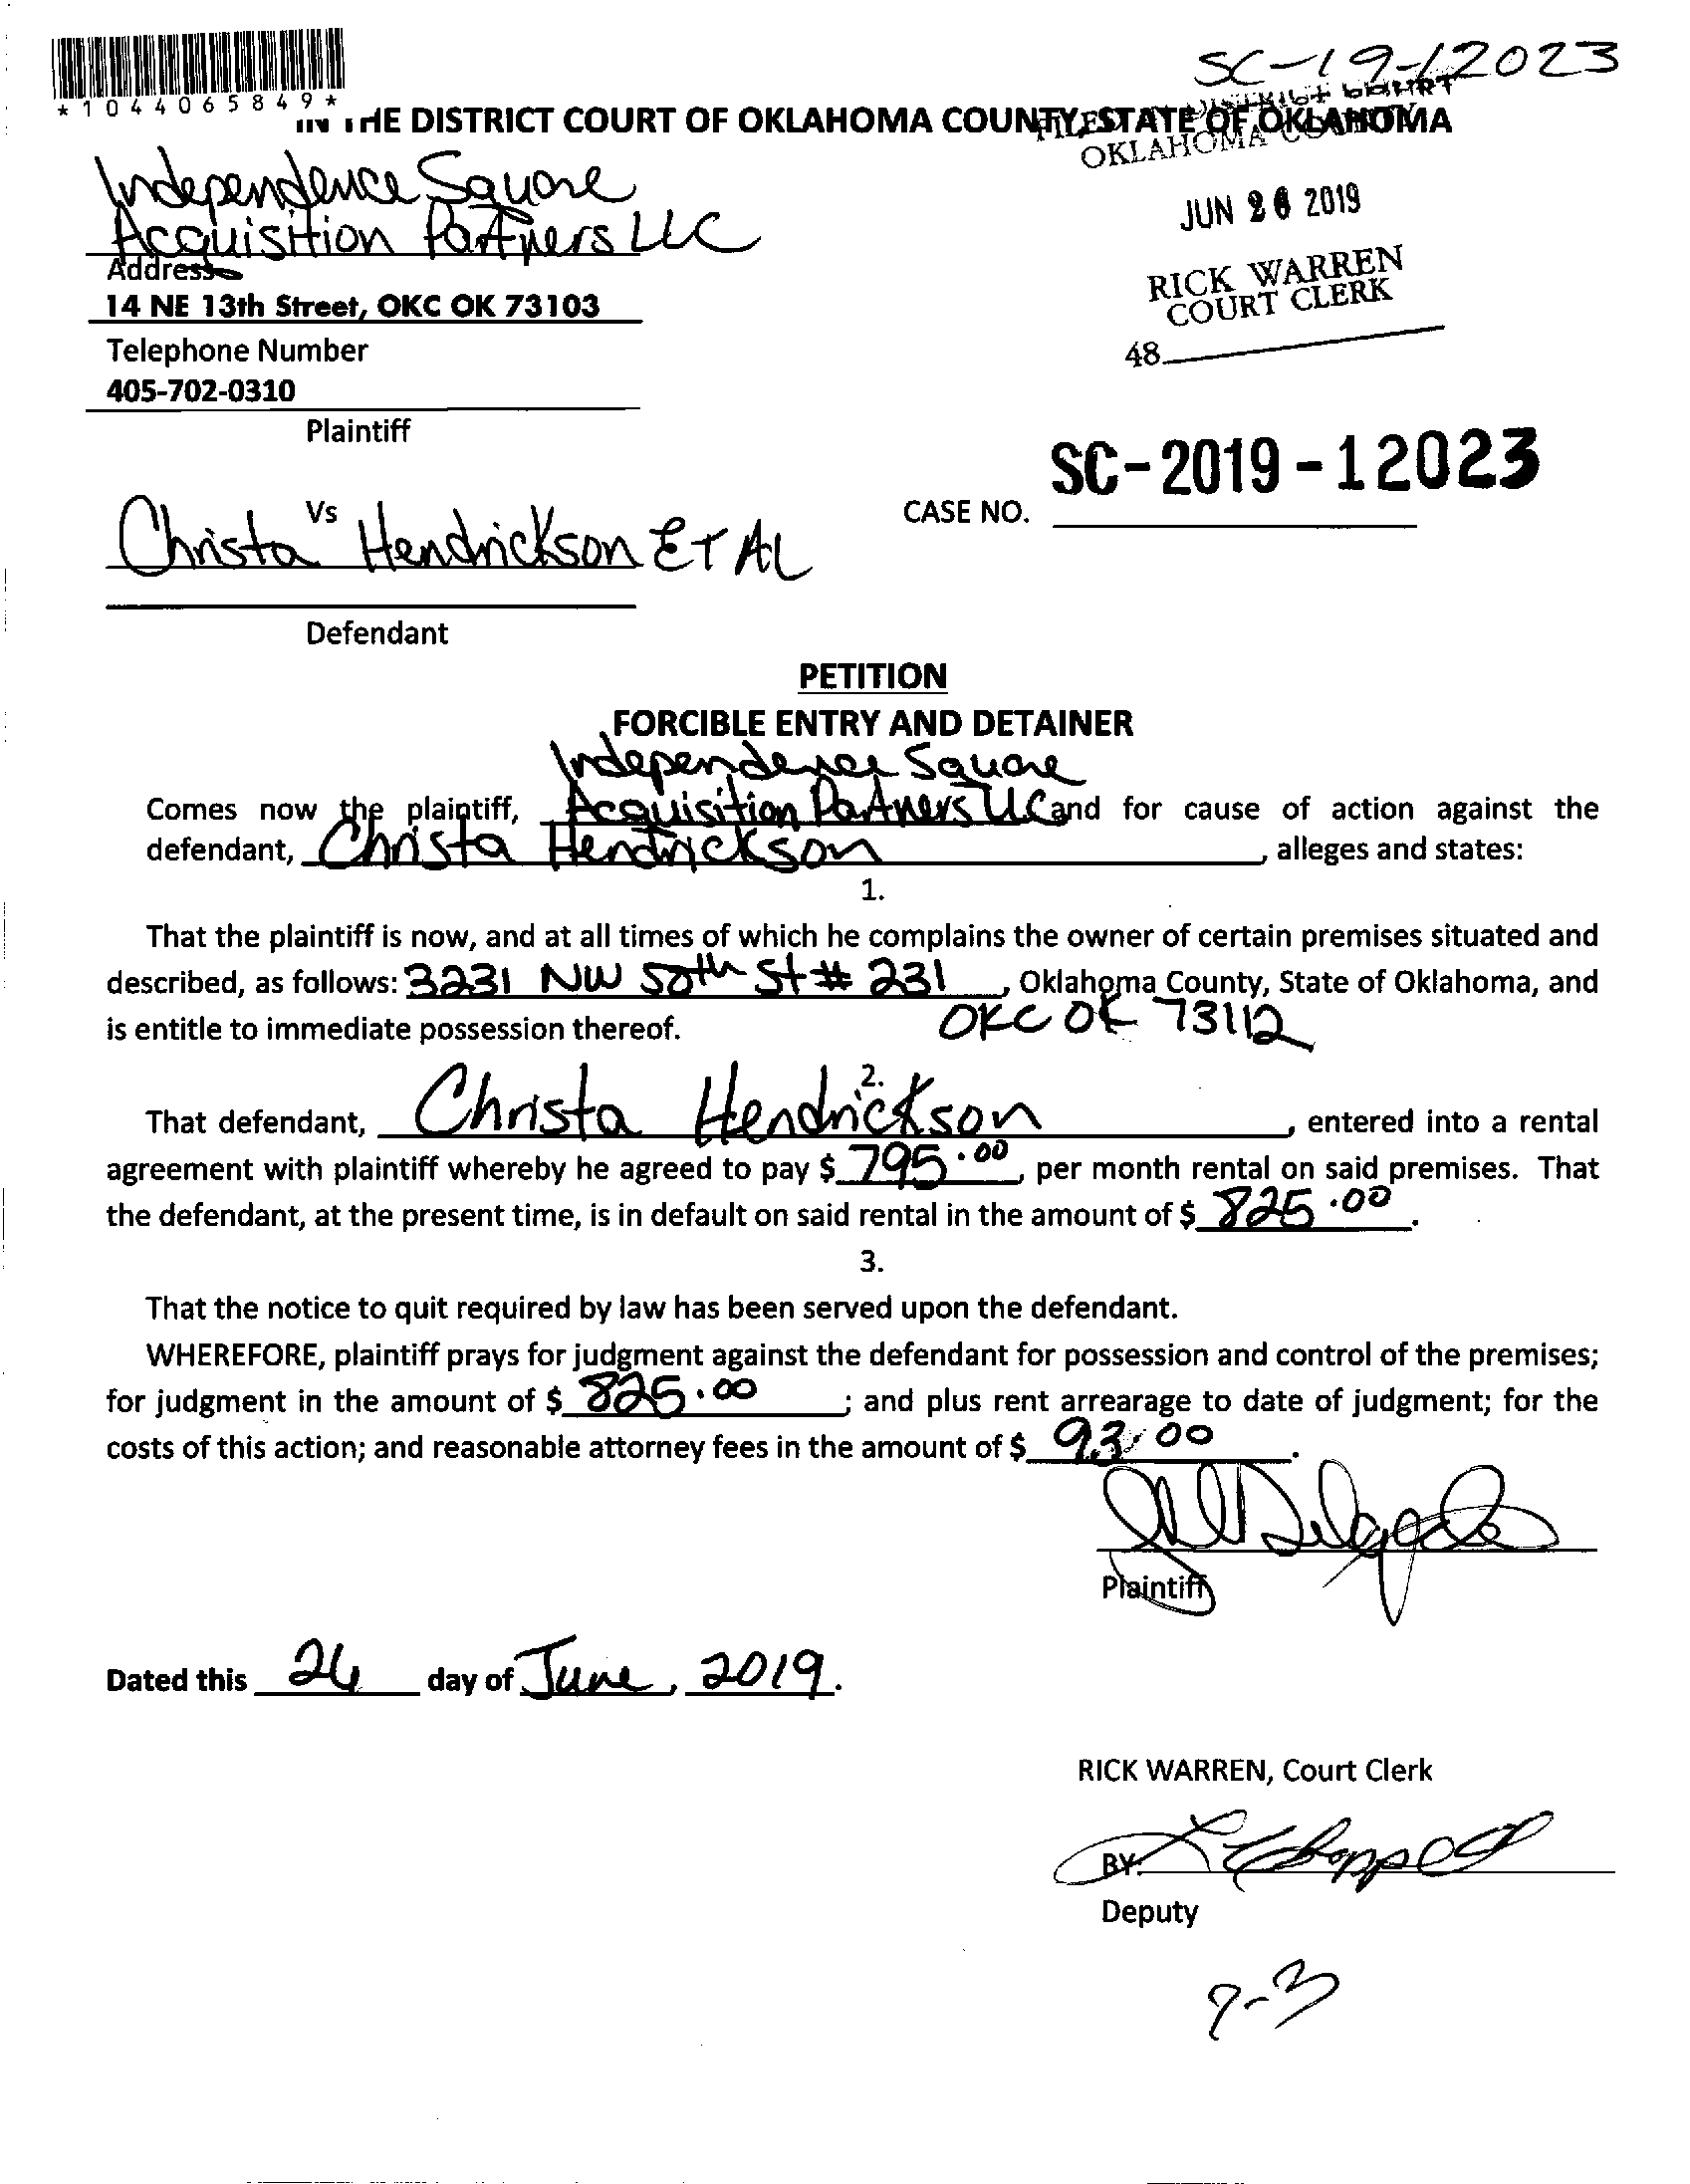 SC-19-12023
*1044065849*
IN THE DISTRICT COURT OF OKLAHOMA COUNTY, STATE OF OKLAHOMA
FILED DISTRICT COURT
OKLAHOMA COUNTY
Independence Square
Acquisition Partners LLC
Address
14 NE 13th Street, OKC OK 73103
Telephone Number
405-702-0310
Plaintiff
JUN 26 2019
RICK WARREN
COURT CLERK
48
Vs
Christa Hendrickson ET AL
Defendant
CASE NO. SC-2019-12023
PETITION
FORCIBLE ENTRY AND DETAINER
Independence Square
Comes now the plaintiff, Acquisition Partners LLC and for cause of action against the
defendant, Christa Hendrickson, alleges and states:
1.
That the plaintiff is now, and at all times of which he complains the owner of certain premises situated and
described, as follows: 3231 NW 50th St # 231, Oklahoma County, State of Oklahoma, and
is entitle to immediate possession thereof. OKC OK 73112
2.
That defendant, Christa Hendrickson, entered into a rental
agreement with plaintiff whereby he agreed to pay $ 795.00, per month rental on said premises. That
the defendant, at the present time, is in default on said rental in the amount of $ 825.00.
3.
That the notice to quit required by law has been served upon the defendant.
WHEREFORE, plaintiff prays for judgment against the defendant for possession and control of the premises;
for judgment in the amount of $ 825.00; and plus rent arrearage to date of judgment; for the
costs of this action; and reasonable attorney fees in the amount of $ 93.00.
Plaintiff
Dated this day of June, 2019.
RICK WARREN, Court Clerk
BY:
Deputy
7-3